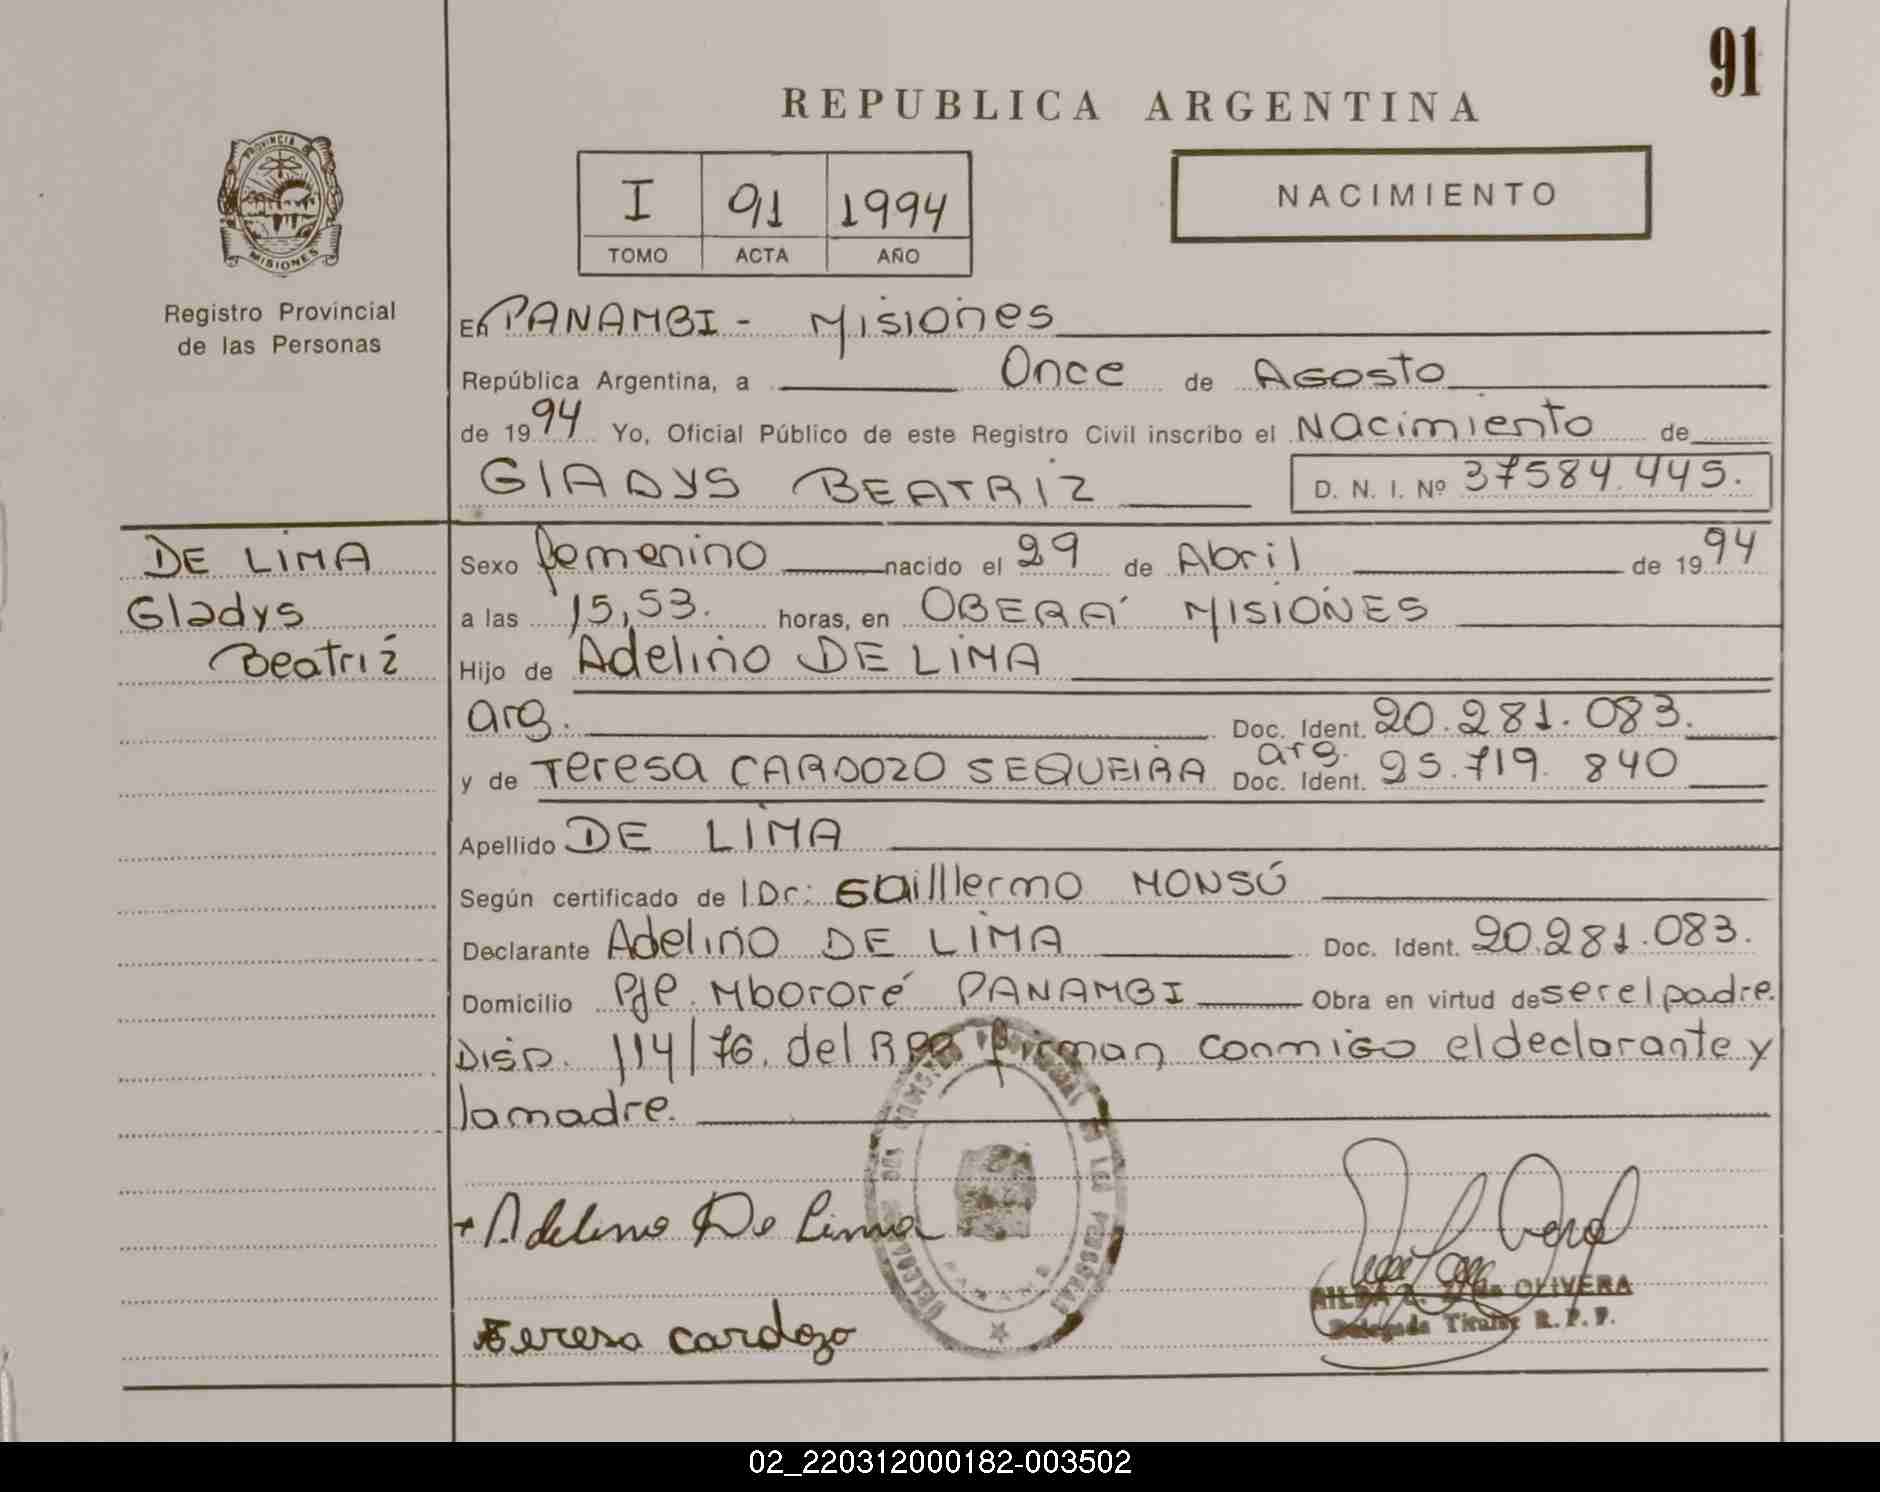 91
REPUBLICA ARGENTINA
PROVINCIA DE
MISIONES
I 91 1994
TOMO ACTA AÑO
NACIMIENTO
Registro Provincial
de las Personas
En PANAMBI - Misiones
República Argentina, a Once de Agosto
de 1994 Yo, Oficial Público de este Registro Civil inscribo el Nacimiento de
GLADYS BEATRIZ D. N. I. Nº 37584.445.
DE LIMA
Gladys
Beatriz
Sexo femenino nacido el 29 de Abril de 1994
a las 15,53. horas, en OBERÁ MISIONES
Hijo de Adelino DE LIMA
arg. Doc. Ident. 20.281.083.
y de Teresa CARDOZO SEQUEIRA arg. Doc. Ident. 25.719.840
Apellido DE LIMA
Según certificado de l Dr: Guillermo MONSÚ
Declarante Adelino DE LIMA Doc. Ident. 20.281.083.
Domicilio Pje. Mbororé PANAMBI Obra en virtud de ser el padre.
Disp. 114/76. del RPP firman conmigo el declarante y
la madre.
Adelino De Lima
Teresa Cardozo
OLIVERA
Delegada Titular R. P. P.
02_220312000182-003502